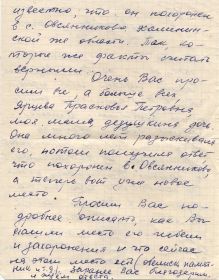 известно, что он похоронен
в с. Овсянниково Хоменин-
ской же области. Так ко-
торые же факты считать
верными. Очень Вас про-
сим я, а больше всех
Ярцева Прасковья Петровна
моя мама, дедушкина дочь
Она много лет разыскивала
его, потом получила ответ
что похоронен в с. Овсянниково,
а теперь вот уже новое
место. Просим Вас по-
дробнее описать, как Вы
узнали место его гибели
и захоронения и что сейчас
на этом месте есть (обелиск, памят-
ник и т.д.). Заранее Вас благодарим
и ждем ответа